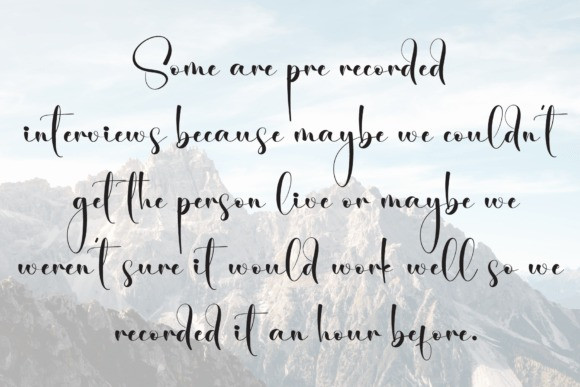 Some are pre recorded
interviews because maybe we couldn't
get the person live or maybe we
weren't sure it would work well so we
recorded it an hour before.